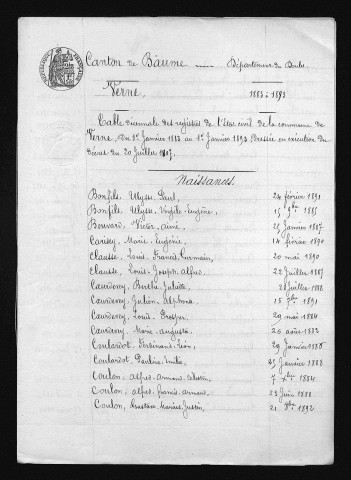 Canton de Baume — Département du Doubs
Verne 1883 à 1893
Table décennale des registres de l'état civil de la commune de
Verne, du 1er Janvier 1883 au 1er Janvier 1893 Dressée en exécution du
Décret du 20 Juillet 1807.
Naissances.
Bonfils Ulysse Paul 24 février 1891
Bonfils, Ulysse Virgile Eugène 15 9bre 1885
Bouvard Victor Aimé 25 Janvier 1887
Marie Eugénie 14 février 1890
Clausse Louis Francis Germain 20 mai 1890
Clausse Louis Joseph Alfred 22 Juillet 1887
Berthe Juliette 28 Juillet 1888
Julien Alphonse 15 7bre 1891
Louis Prosper 29 mai 1884
Marie Augusta 20 août 1883
Coulardot Ferdinand Léon 29 Janvier 1885
Coulardot Pauline Emilie 25 Janvier 1888
Coulon, Alfred Armand 7 Xbre 1884
Coulon, Alfred Francis Armand 23 Juin 1888
Coulon, Gustave Marius Justin 21 1892